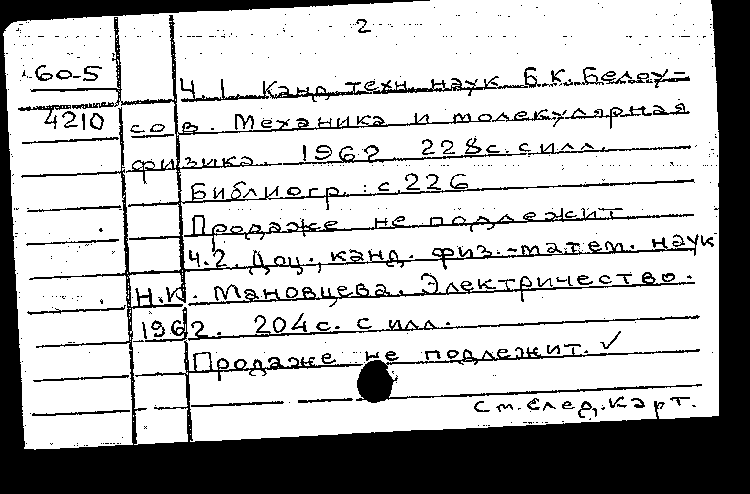 2
60-5
4210
Ч.1. Канд. техн. наук Б.К. Белоу-
сов. Механика и молекулярная
физика. 1962 228с. с илл.
Библиогр.: с. 226
Продаже не подлежит
Ч.2. Доц., канд. физ.-матем. наук
Н.К. Мановцева. Электричество.
1962. 204с. с илл.
Продаже не подлежит. ✓
См. след. карт.